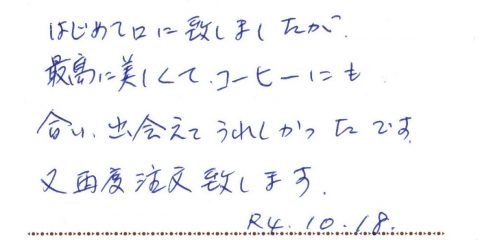 はじめて口に致しましたが、
最高に美しくて、コーヒーにも
合い、出会えてうれしかったです。
又再度注文致します。
R4.10.18.